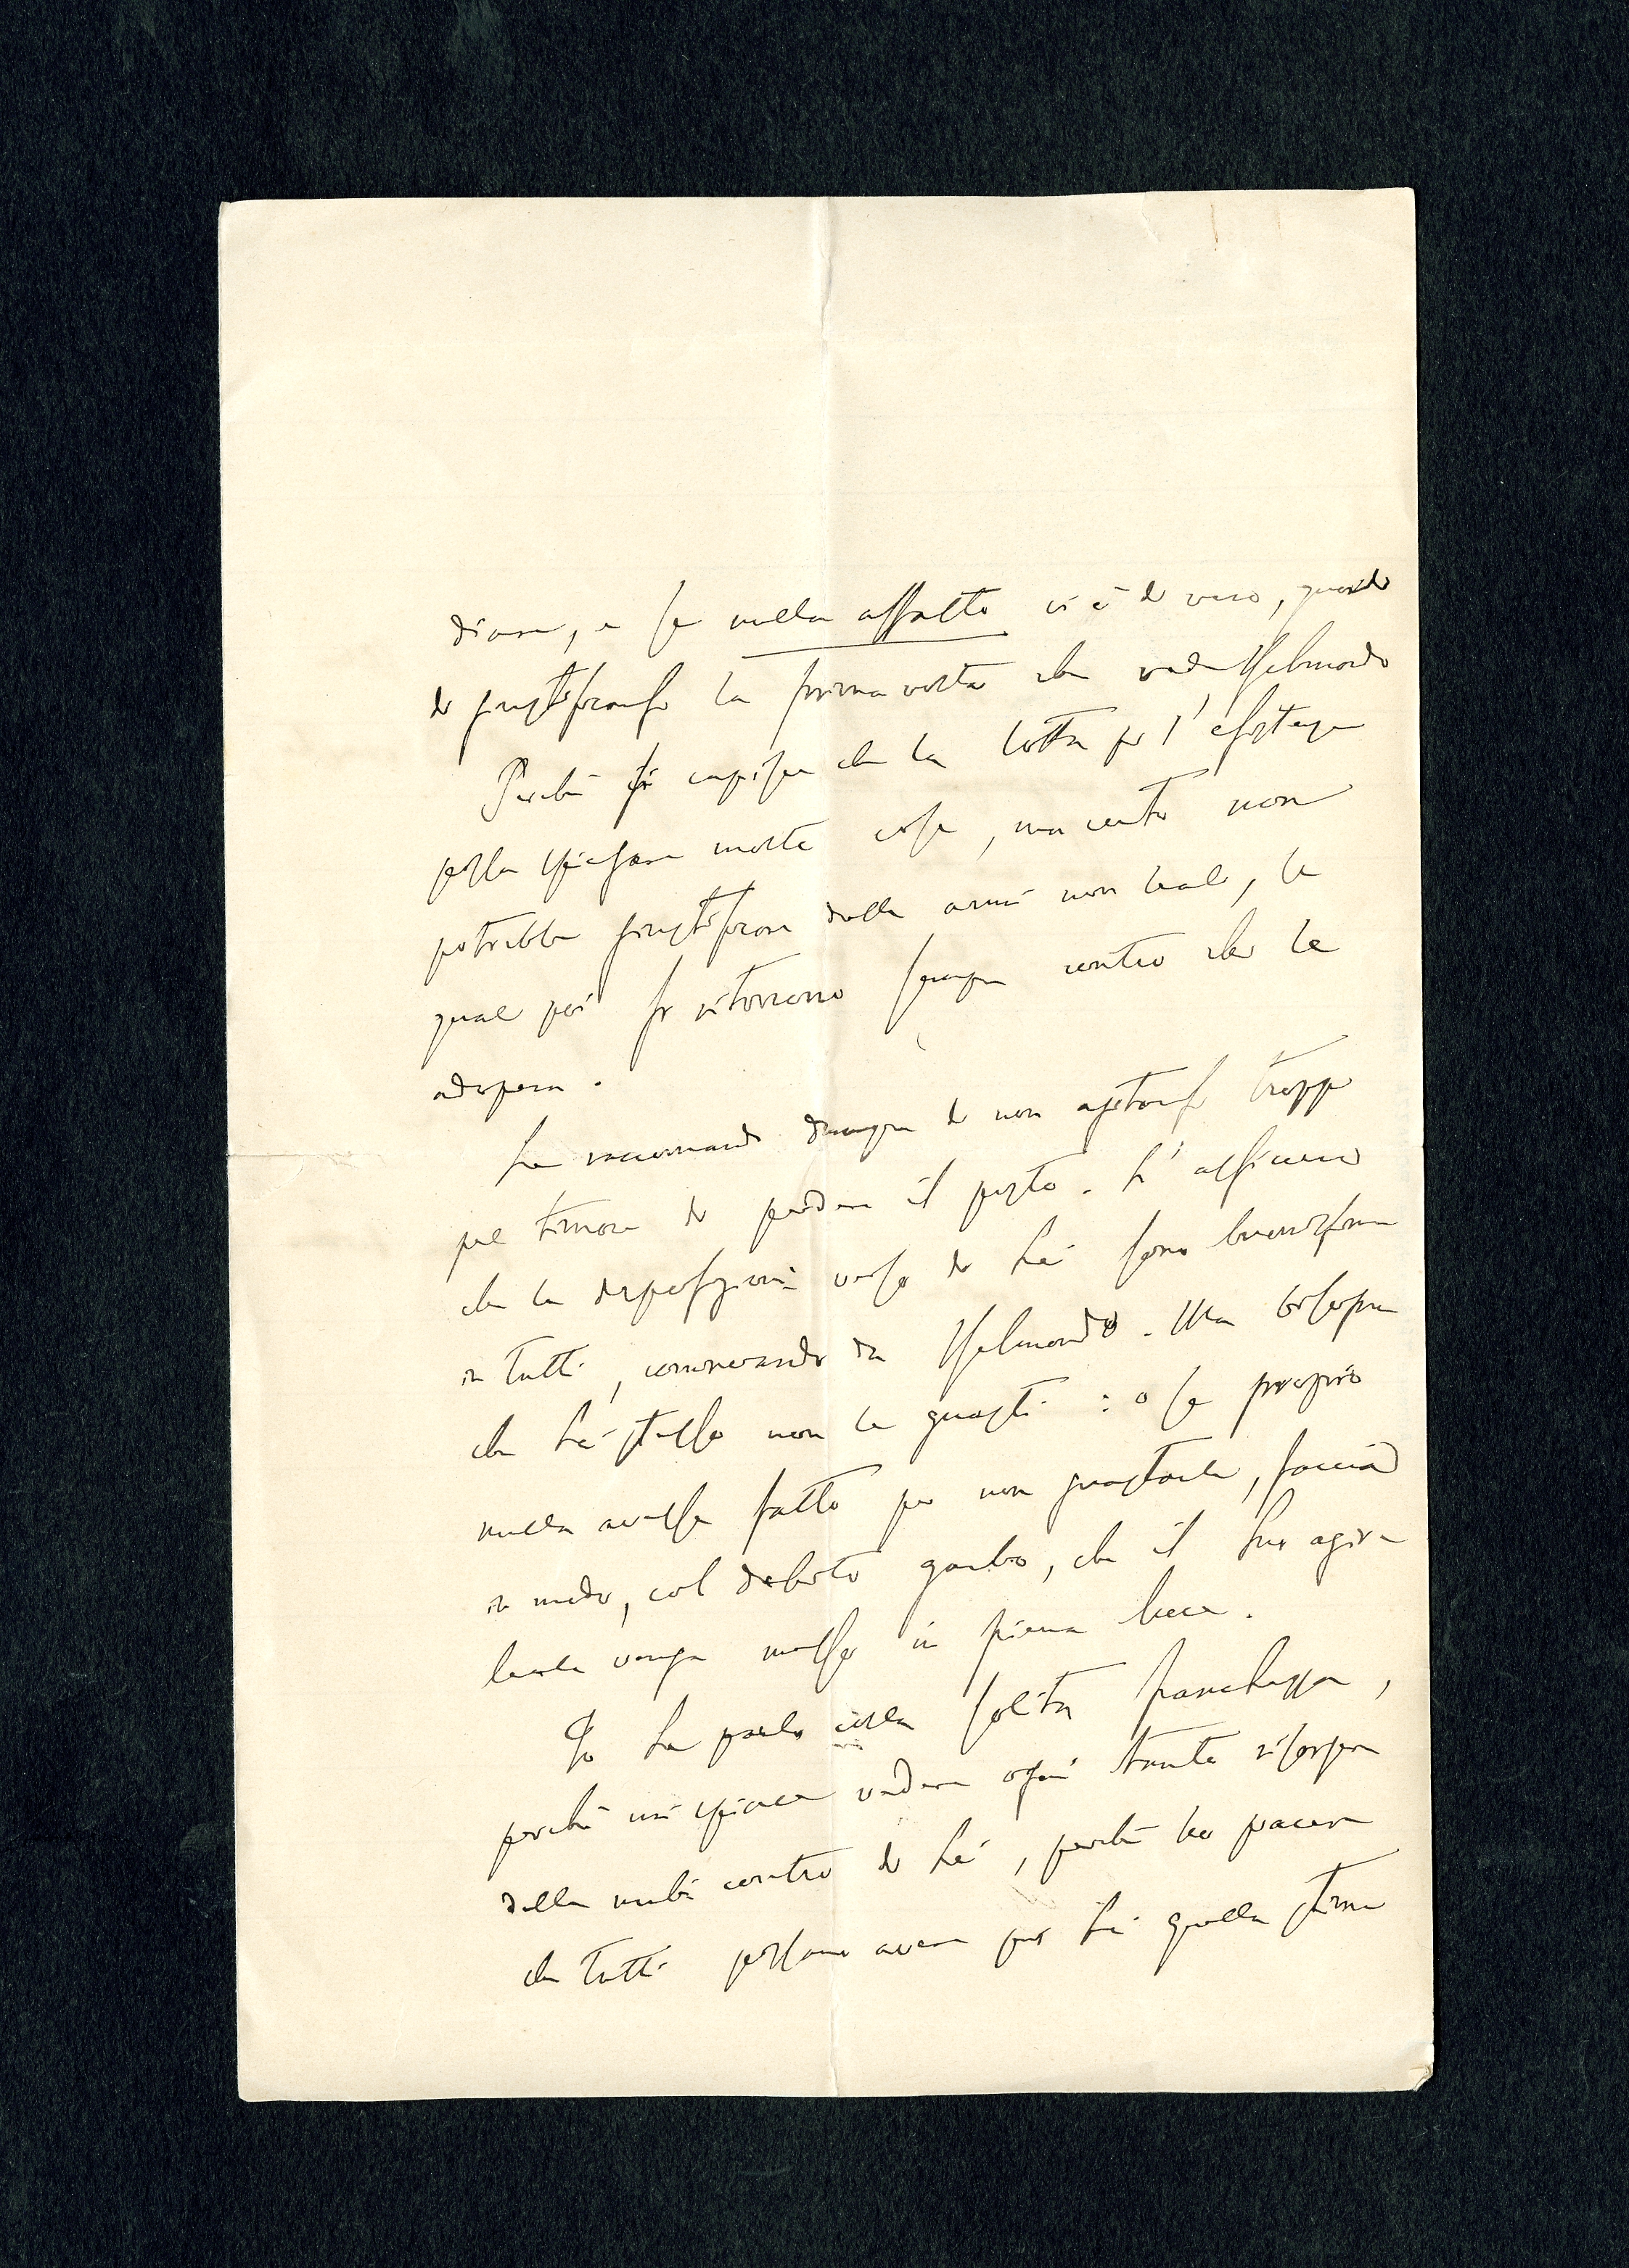 dirne, e se nulla affatto vi è di vero, guardi
di giustificarsi la prima volta che vede Helmondo
Perchè si capisce che la lotta per l'esistenza
possa spiegare molte cose, ma certo non
potrebbe giustificare delle armi non leali, le
quali poi si ritorcono sempre contro chi le
adopera.
Le raccomando dunque di non agitarsi troppo
pel timore di perdere il posto. L'assicuro
che le disposizioni verso di Lei sono buonissime
in tutti, cominciando da Helmondo. Ma bisogna
che Lei stesso non le guasti: o se proprio
nulla avesse fatto per non guastarle, faccia
in modo, col debito garbo, che il Suo agire
leale venga messo in piena luce.
Io Le parlo colla solita franchezza,
perchè mi spiace vedere ogni tanto risorgere
delle nubi contro di Lei, perchè ho piacere
che tutti possano avere per Lei quella stima